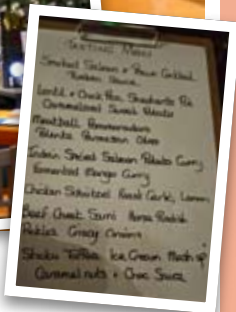 Tasting Menu
Smoked Salmon + Prawn Cocktail
Sauce
Lentil + Chick Pea, Shepherds Pie
Caramelised Sweet Potato
Meatball
Parmesan
Indian Spiced Salmon Potato Curry
Fermented Mango Curry
Chicken Schnitzel Roast Garlic, Lemon
Beef Cheek Sarni Horse Radish
Pickles Gravy Onions
Sticky Toffee Ice Cream Mash up
Caramel nuts + Choc Sauce